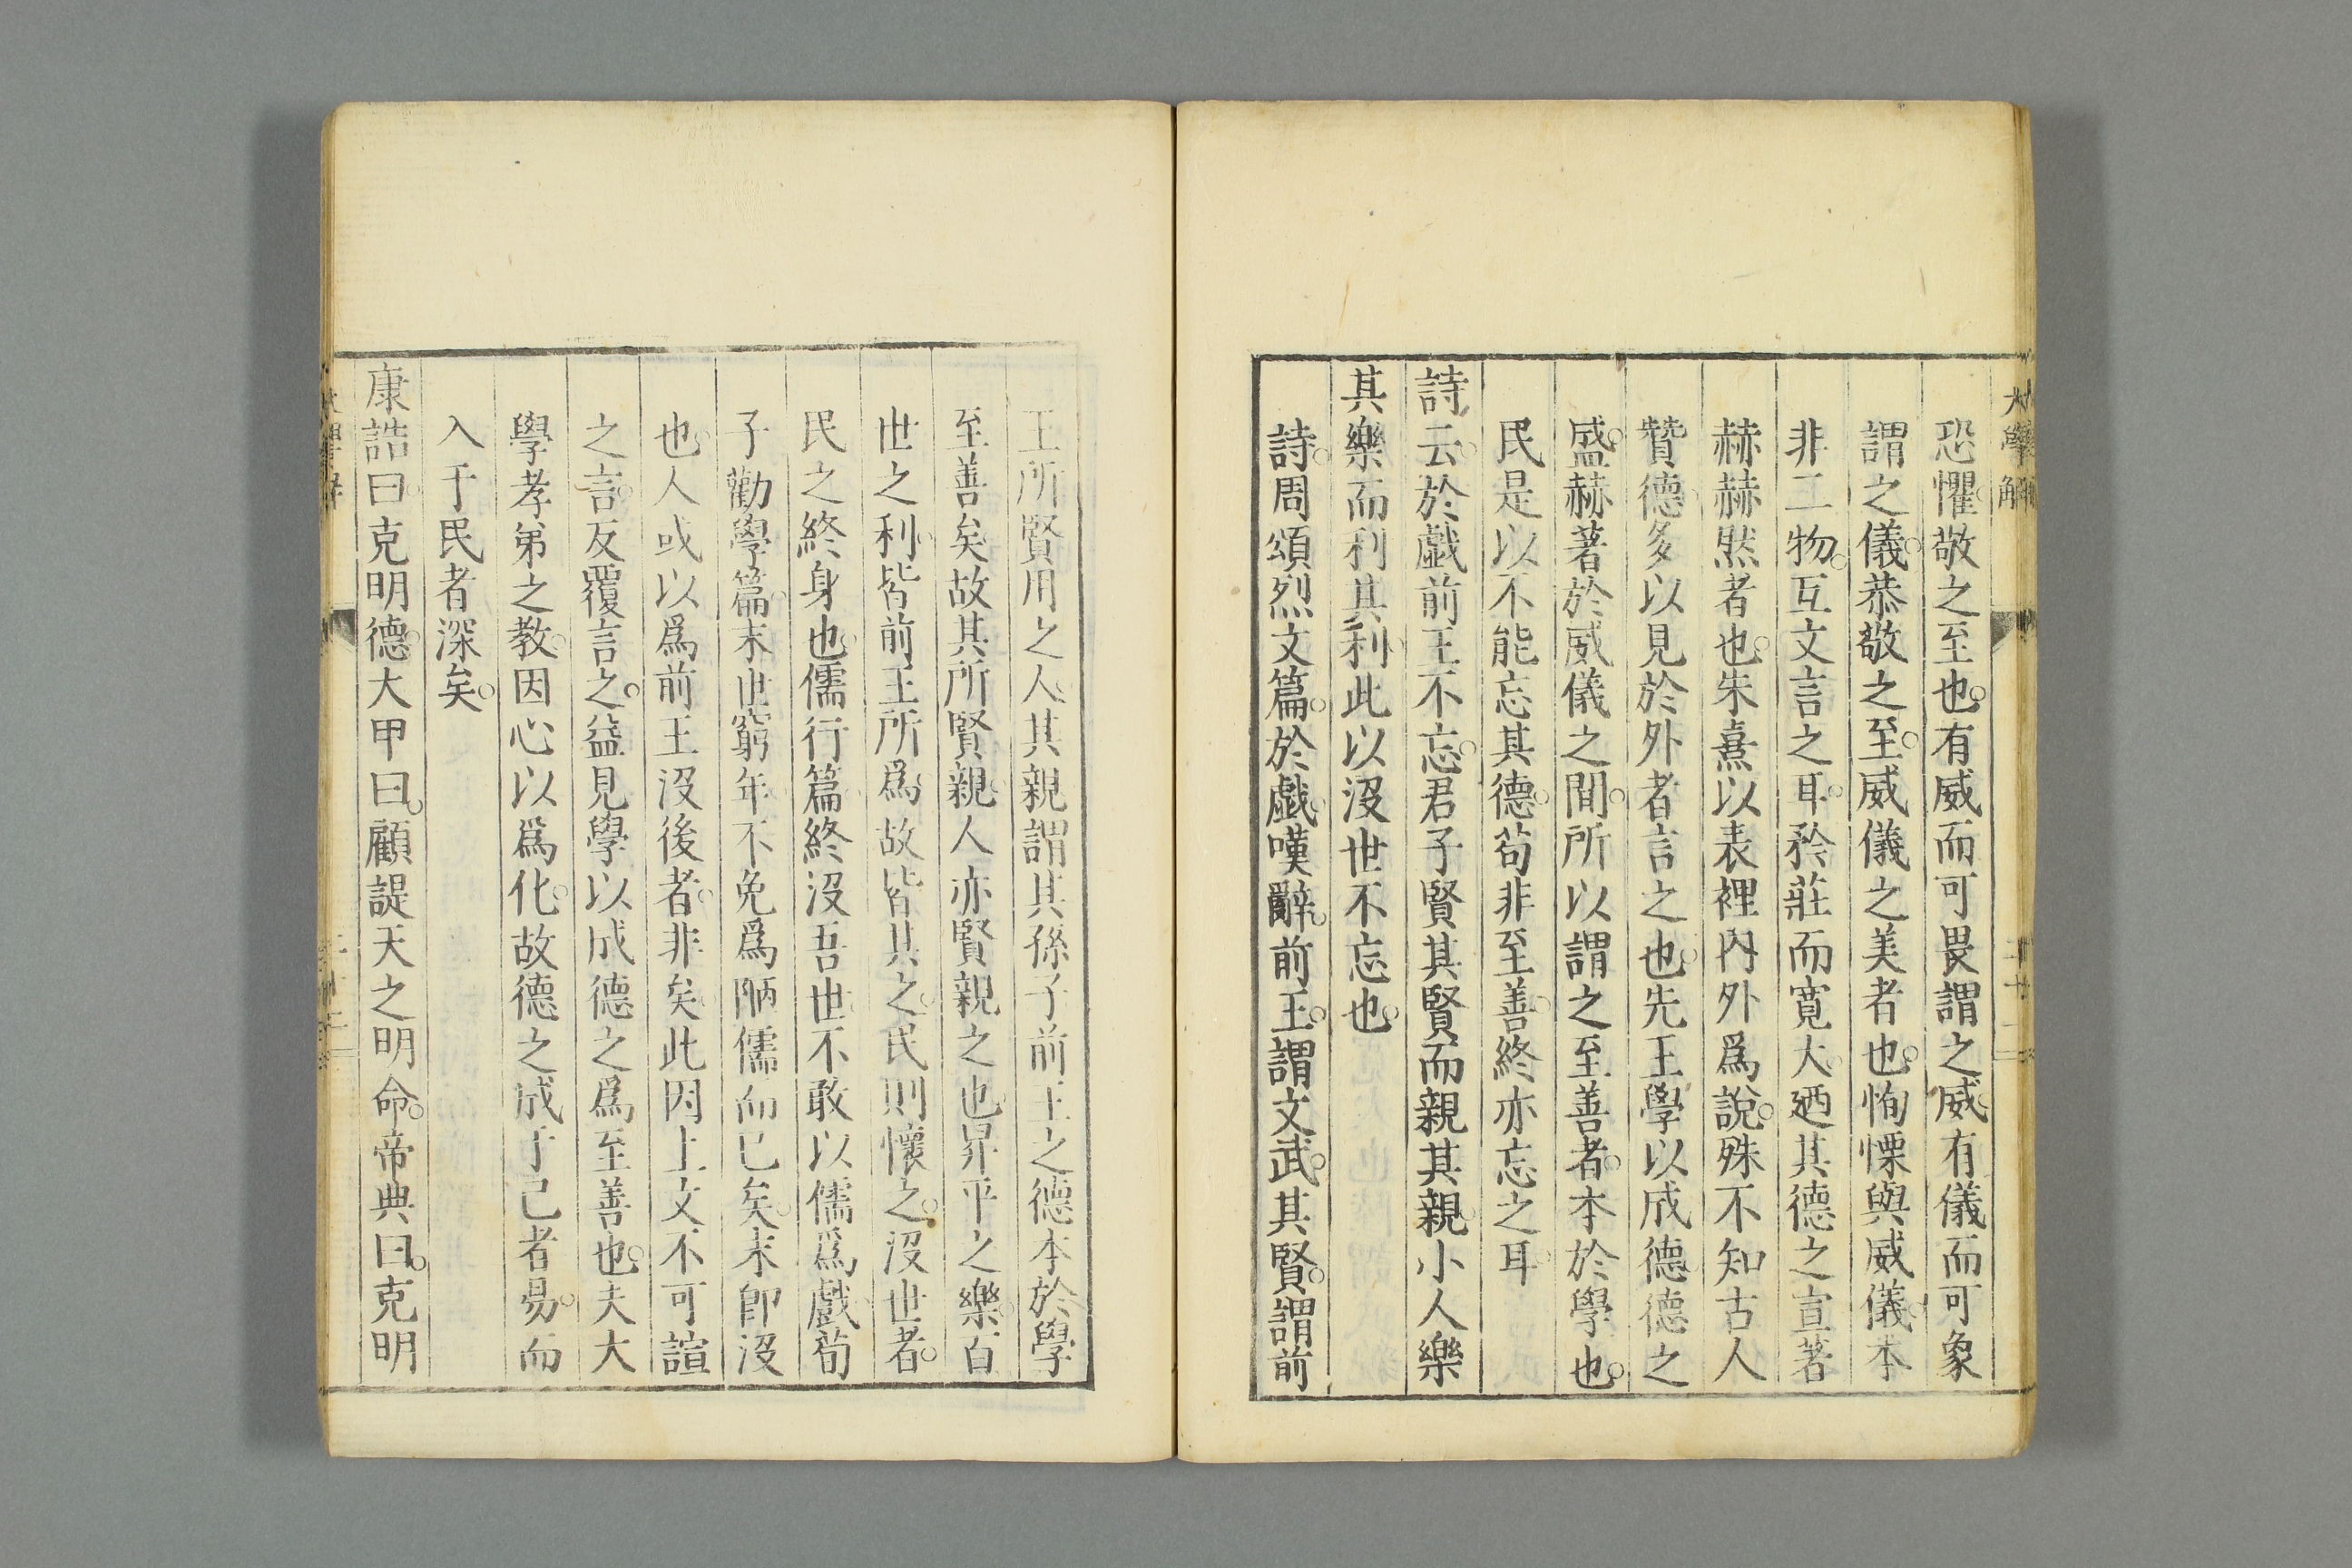 大學解
恐懼敬之至也。有威而可畏謂之威有儀而可象
謂之儀。恭敬之至。威儀之美者也。恂慄與威儀。本
非二物。互文言之耳。矜莊而寬大。廼其德之宣著
赫赫然者也。朱熹以表裡內外爲說。殊不知古人
贊德多以見於外者言之也。先王學以成德德之
盛。赫著於威儀之間。所以謂之至善者。本於學也。
民是以不能忘其德。苟非至善。終亦忘之耳
詩云。於戯前王不忘。君子賢其賢而親其親。小人樂
其樂而利其利。此以沒世不忘也。
詩。周頌烈文篇。於戯。嘆辭。前王。謂文武。其賢。謂前
王所賢用之人。其親謂其孫子前王之德本於學
至善矣故其所賢親。人亦賢親之也。昇平之樂。百
世之利。皆前王所爲。故皆其之。民則懷之。沒世者。
民之終身也。儒行篇。終沒吾世。不敢以儒爲戲。荀
子勸學篇。末世窮年。不免爲陋儒而已矣。末卽沒
也。人或以爲前王沒後者。非矣。此因上文不可諠
之言。反覆言之。益見學以成德之爲至善也。夫大
學孝弟之教。因心以爲化。故德之成于己者易。而
入于民者深矣。
康誥曰。克明德。大甲曰。顧諟天之明命。帝典曰。克明